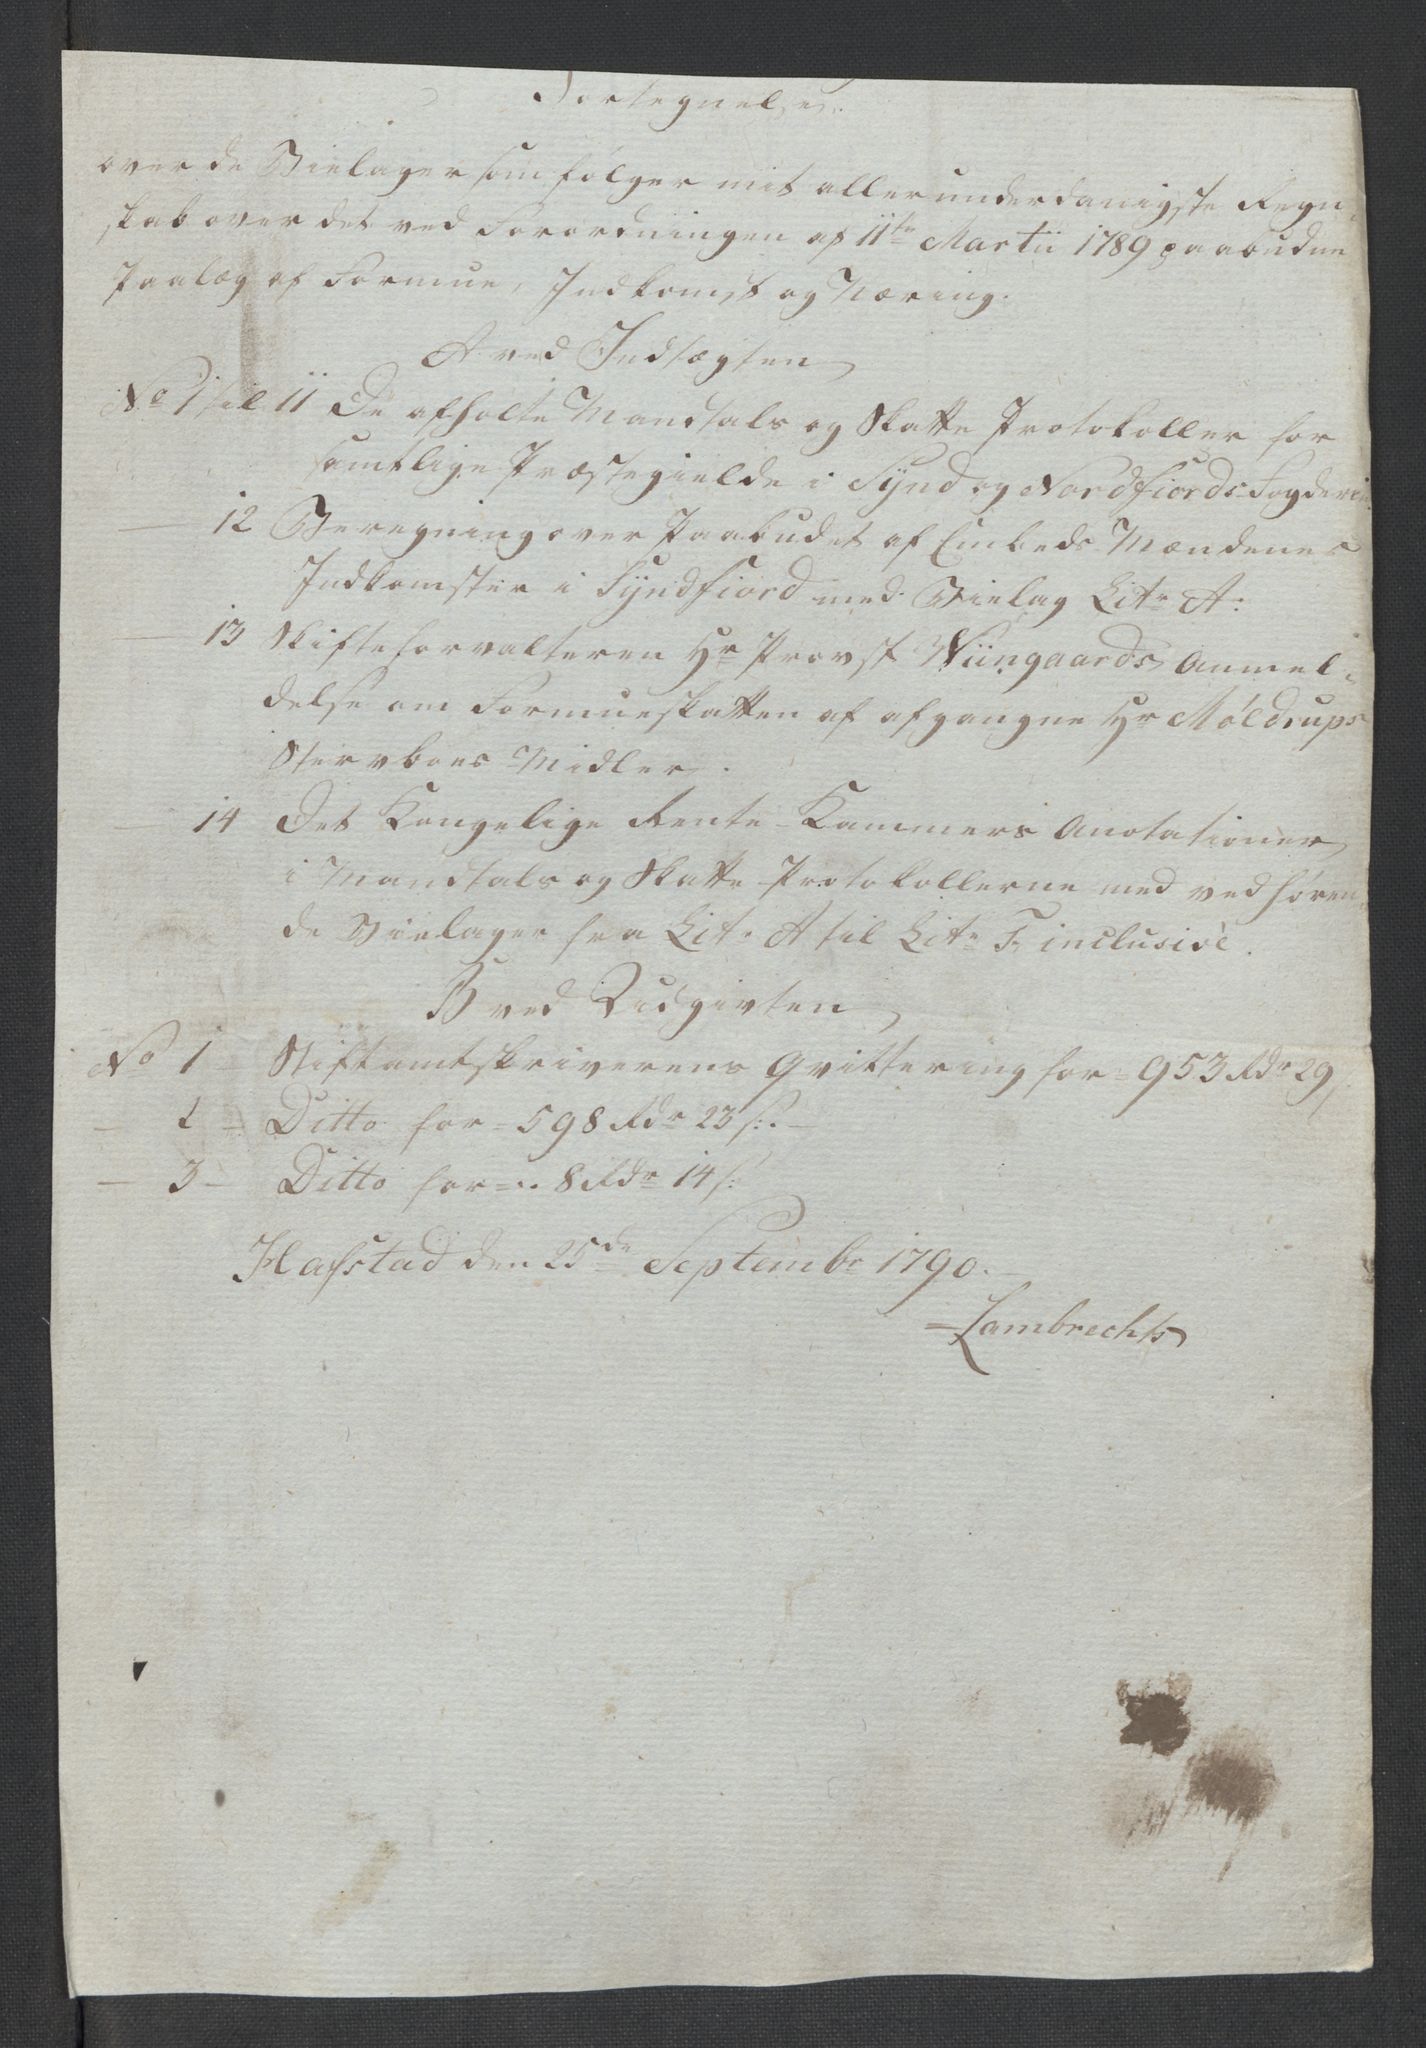 Fortegnelse
over de Bielager som følger mit allerunderdanigste Regn-
skab over det ved Forordningen af 11te Martii 1789 paabudne
Paalæg af Formue, Indkomst og Næring.
A ved Indtægten
No 1 til 11 De afholte Mandtals og Skatte Protokoller for
samtlige Præstegielde i Synd og Nordfiords Fogderie
— 12 Beregning over Paabudet af Embeds Mændenes
Indkomster i Syndfiord med Bielag Litr A:
— 13 Skifteforvalteren Hr Provst Wiingaards Anmel-
delse om Formueskatten af afgangne Hr Møldrups
Stervboes Midler.
— 14 Det Kongelige Rente-Kammers Anotationer
i Mandtals og Skatte Protokollerne med vedhøren-
de Bielager fra Litr A til Litr F inclusive.
B ved Udgivten
No 1 Stiftamtskriverens Qvittering for = 953 Rdr 29
— 2 — Ditto for = 598 Rdr 23 s:. —
— 3 — Ditto for = .. 8 Rdr 14 s:
Hafstad den 25de Septembr 1790.
Lambrechts